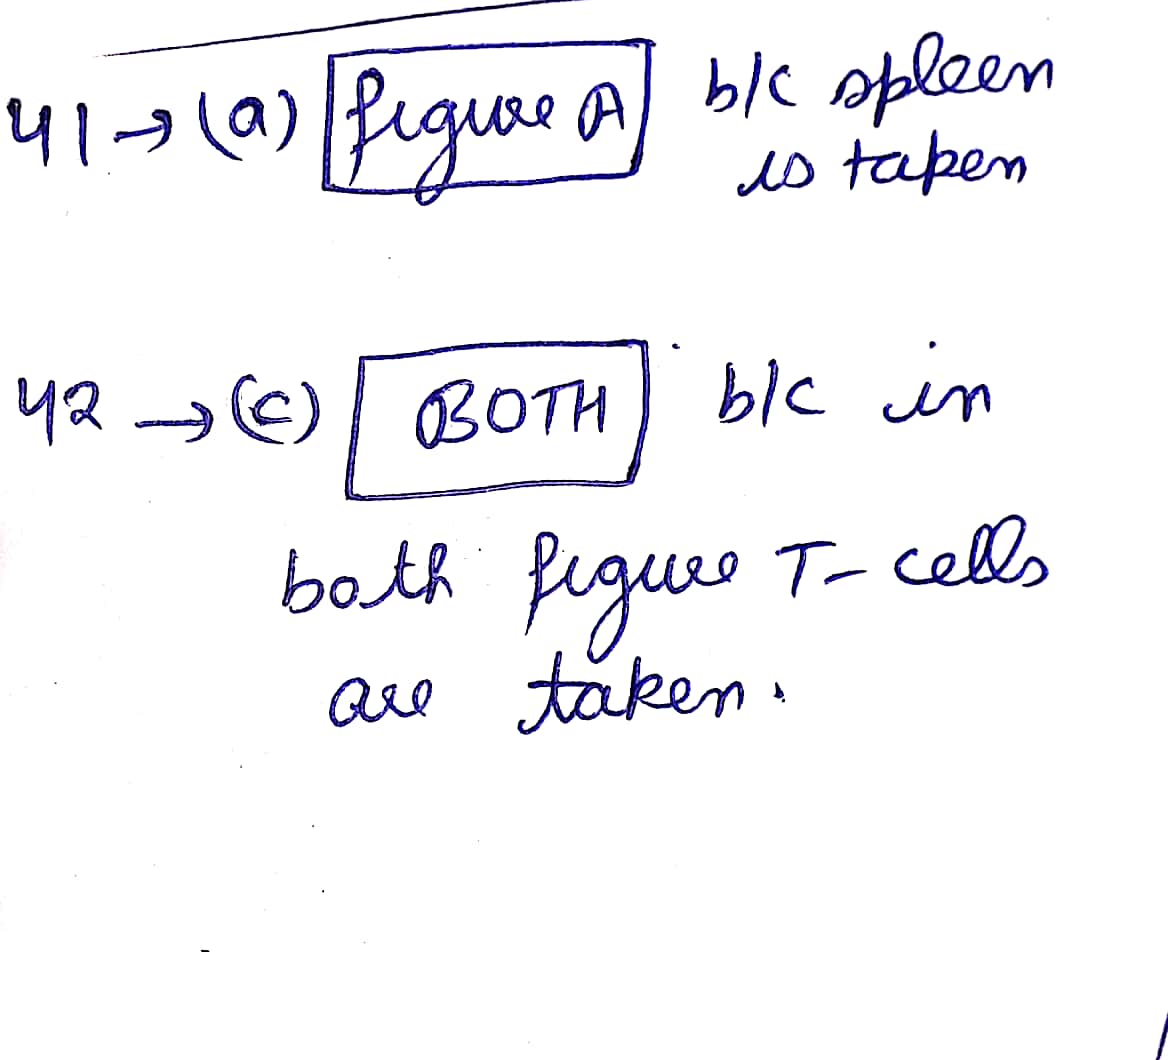 41 → (a) figure A b/c spleen
is taken
42 → (c) BOTH b/c in
both figure T- cells
are taken.